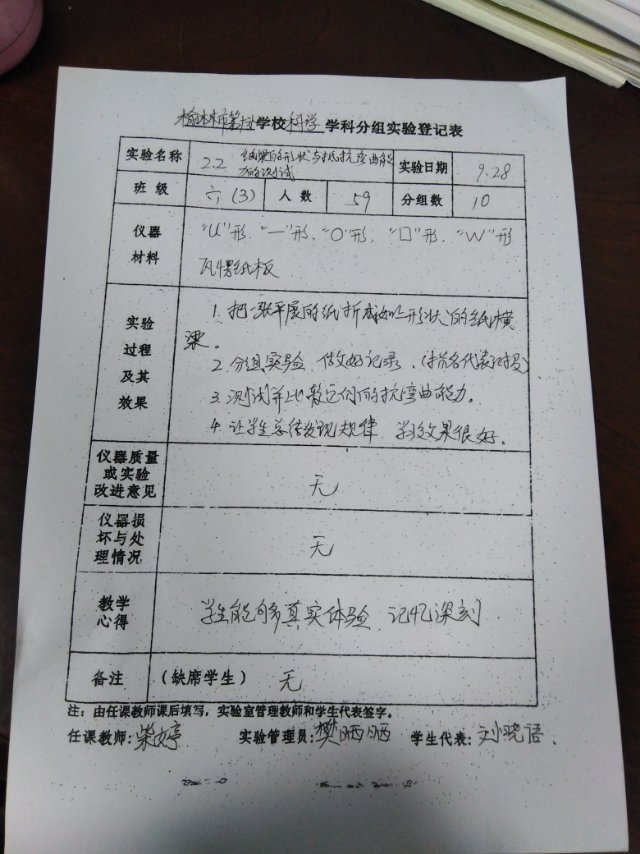 榆林师附小学校科学学科分组实验登记表
实验名称 2.2 纸梁的形状与抵抗弯曲能力的测试 实验日期 9.28
班级 六(3) 人数 59 分组数 10
仪器材料 "U"形.“一”形、“O”形, “口”形,“W”形
瓦楞纸板
实验过程及其效果
1. 把一张平展的纸折成如上形状的纸横
梁。
2. 分组实验 做好记录、(指名代表汇报)
3. 测试并比较它们的抗弯曲能力。
4. 让学生总结发现规律 效果很好。
仪器质量或实验改进意见 无
仪器损坏与处理情况 无
教学心得 学生能够真实体验 记忆深刻
备注 (缺席学生) 无
注:由任课教师课后填写,实验室管理教师和学生代表签字。
任课教师:柴婷 实验管理员:樊晒晒 学生代表:刘晓语、